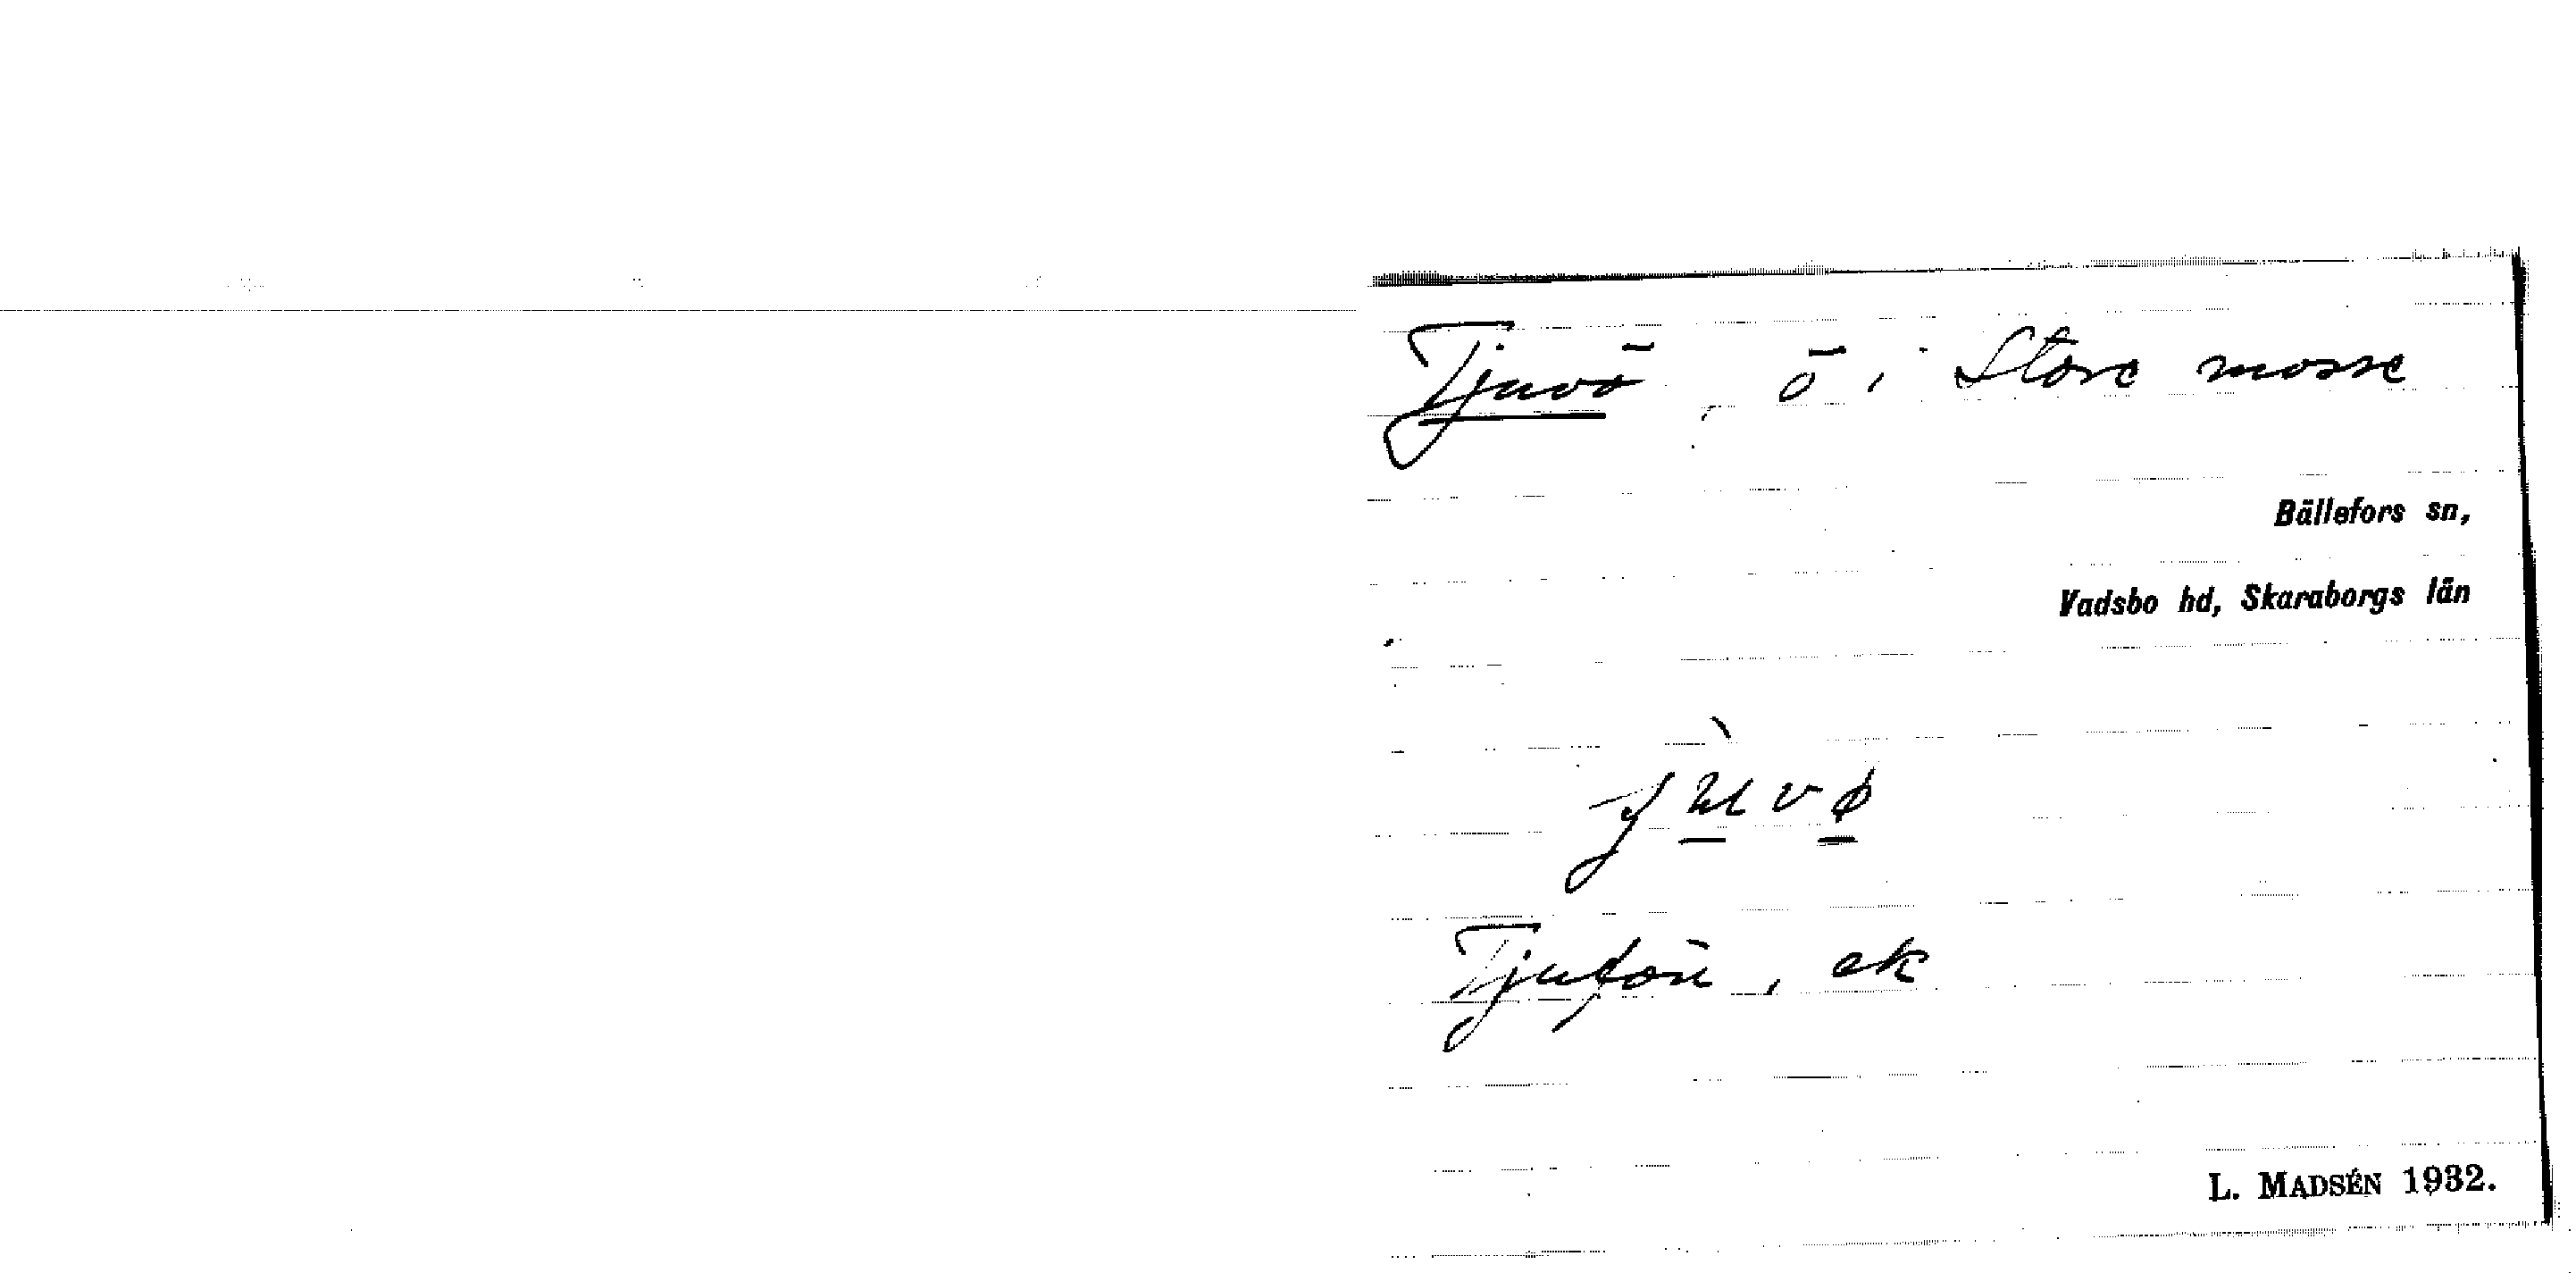 Tjuvö, ö i Store mosse
Bällefors sn,
Vadsbo hd, Skaraborgs län
Tjufön, ek
L. MADSÉN 1932.